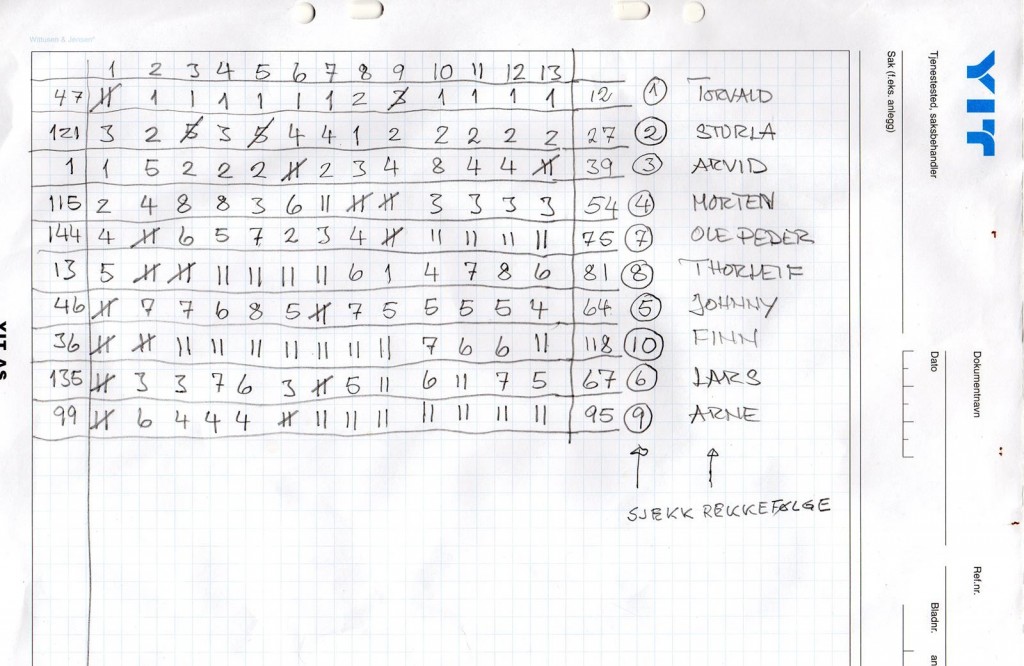 Wittusen & Jensen
1 2 3 4 5 6 7 8 9 10 11 12 13
47 11 1 1 1 1 1 1 2 3 1 1 1 1 12 1 TORVALD
121 3 2 5 3 5 4 4 1 2 2 2 2 2 27 2 STURLA
1 1 5 2 2 2 11 2 3 4 8 4 4 11 39 3 ARVID
115 2 4 8 8 3 6 11 11 11 3 3 3 3 54 4 MORTEN
144 4 11 6 5 7 2 3 4 11 11 11 11 11 75 7 OLE PEDER
13 5 11 11 11 11 11 11 6 1 4 7 8 6 81 8 THORLEIF
46 11 7 7 6 8 5 11 7 5 5 5 5 4 64 5 JOHNNY
36 11 11 11 11 11 11 11 11 11 7 6 6 11 118 10 FINN
135 11 3 3 7 6 3 11 5 11 6 11 7 5 67 6 LARS
99 11 6 4 4 4 11 11 11 11 11 11 11 11 95 9 ARNE
SJEKK REKKEFØLGE
YIT
Tjenestested, saksbehandler
Sak (f.eks. anlegg)
Dokumentnavn
Dato
Ref.nr.
Bladnr.
YIT AS